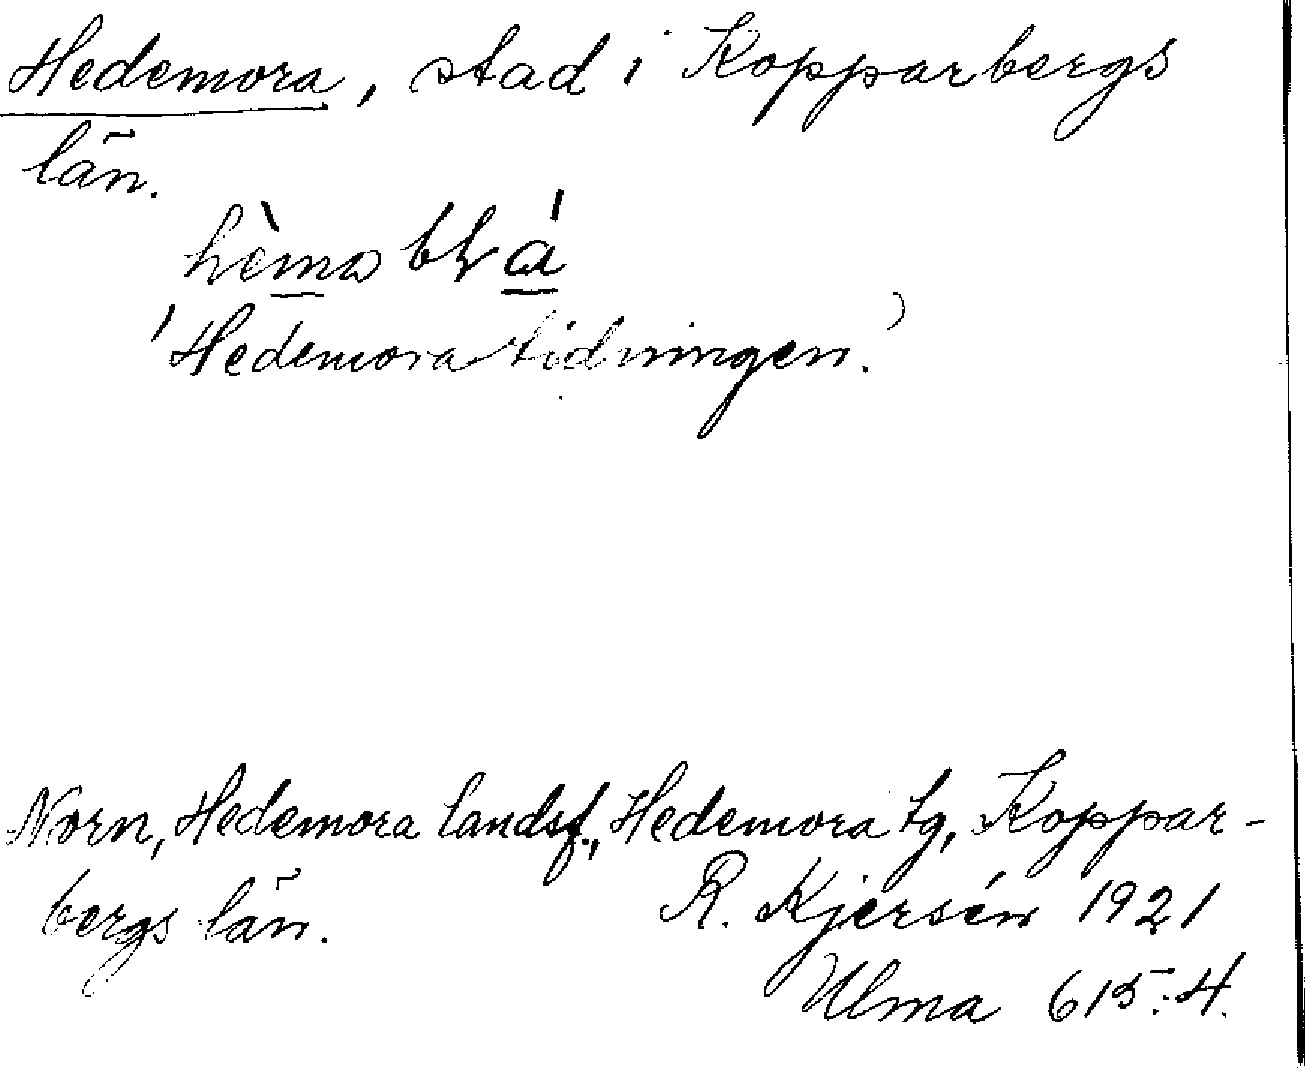 Hedemora, stad i Kopparbergs
län.
'Hedemoratidningen.'
Norn, Hedemora landsf., Hedemora tg, Koppar-
bergs län. R. Kjersén 1921
Ulma 615:4.